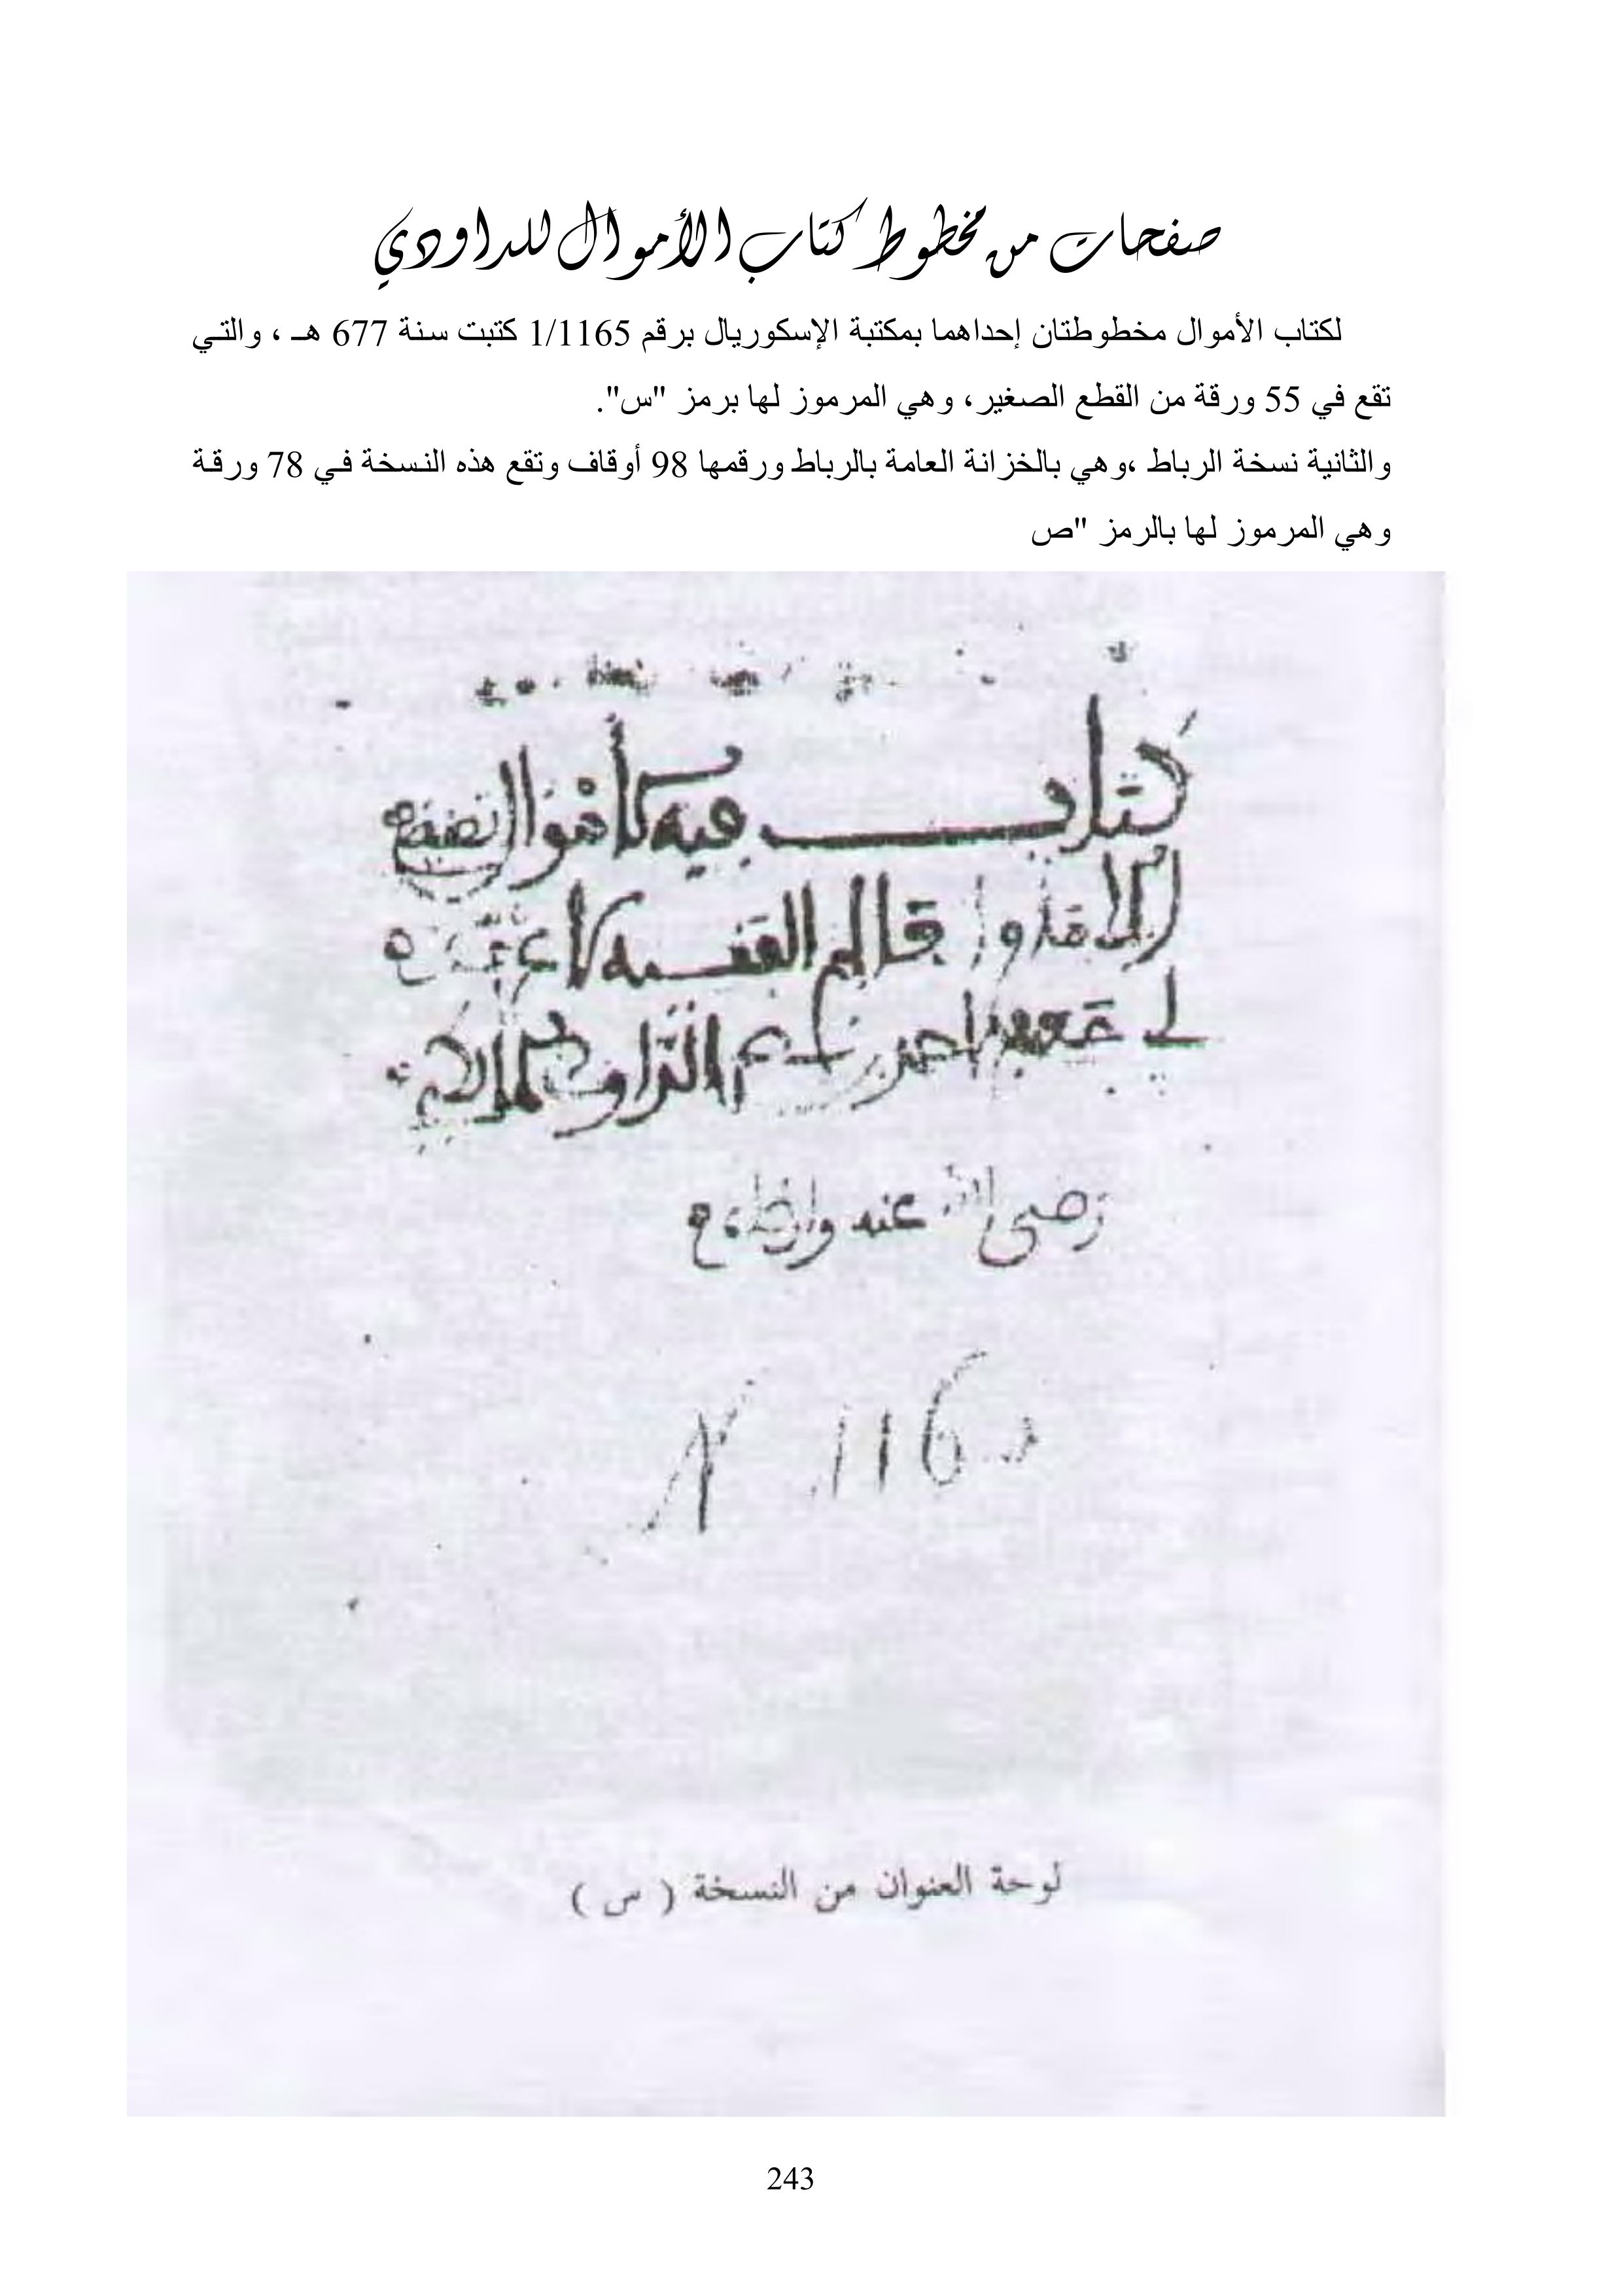 صفحات من مخطوط كتاب الأموال للداودي
لكتاب الأموال مخطوطتان إحداهما بمكتبة الإسكوريال برقم 1/1165 كتبت سنة 677 هـ ، والتي
تقع في 55 ورقة من القطع الصغير، وهي المرموز لها برمز "س".
والثانية نسخة الرباط ،وهي بالخزانة العامة بالرباط ورقمها 98 أوقاف وتقع هذه النسخة في 78 ورقة
وهي المرموز لها بالرمز "ص
كتاب فيه الأموال
تاليف الفقيه
الداودي المالكي
رضي الله عنه وارضاه
N 116
لوحة العنوان من النسخة ( س )
243